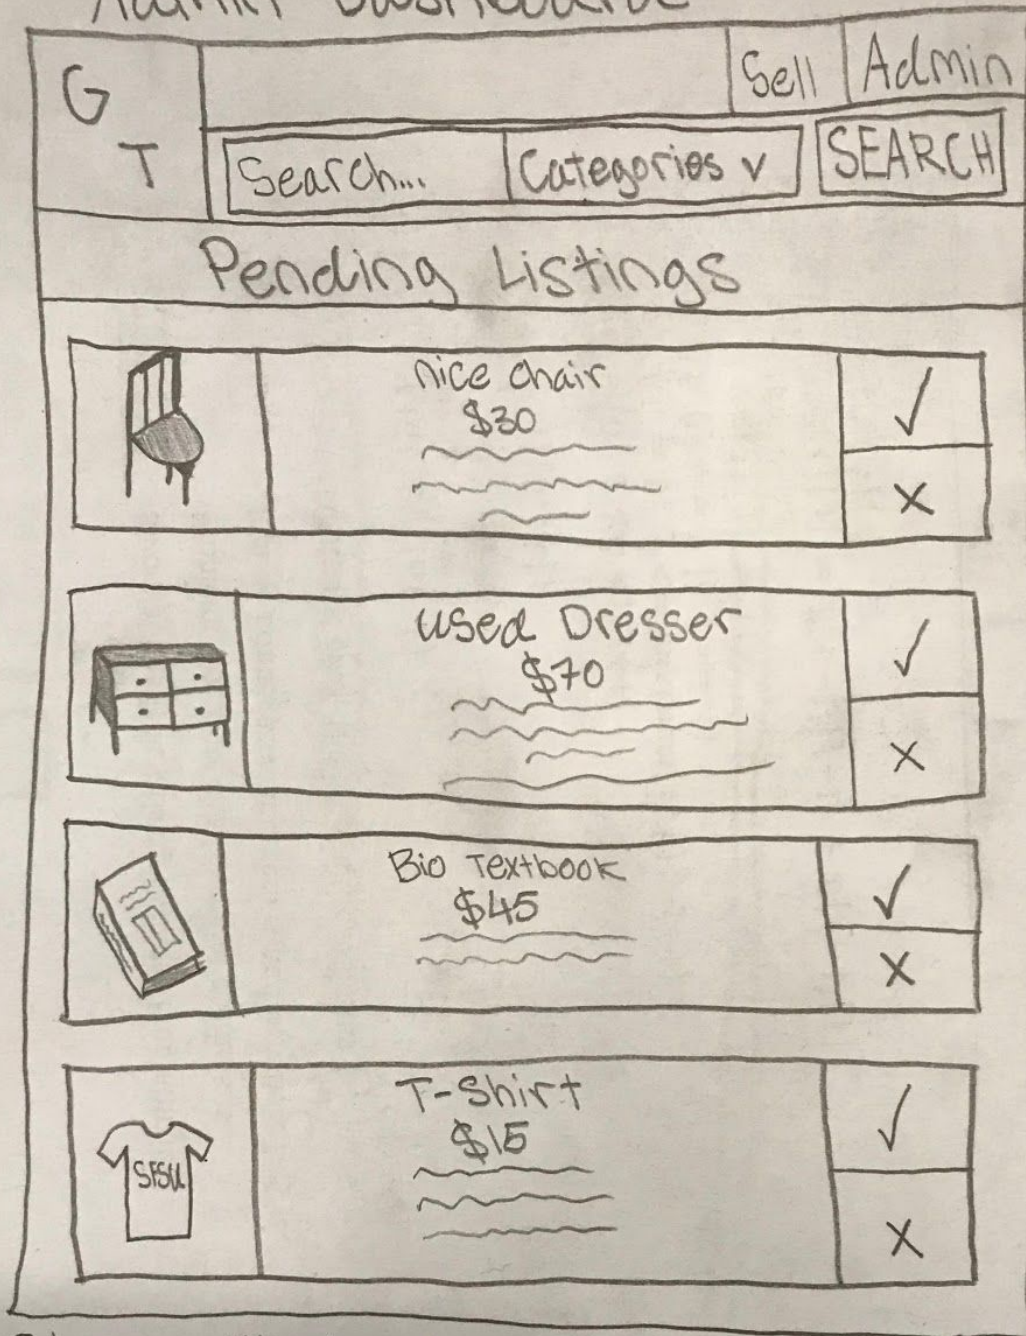 Admin Dashboard
G
T
Sell
Admin
Search...
Categories v
SEARCH
Pending Listings
nice chair
$30
✓
X
Used Dresser
$70
✓
X
Bio Textbook
$45
✓
X
T-Shirt
$15
SFSU
✓
X